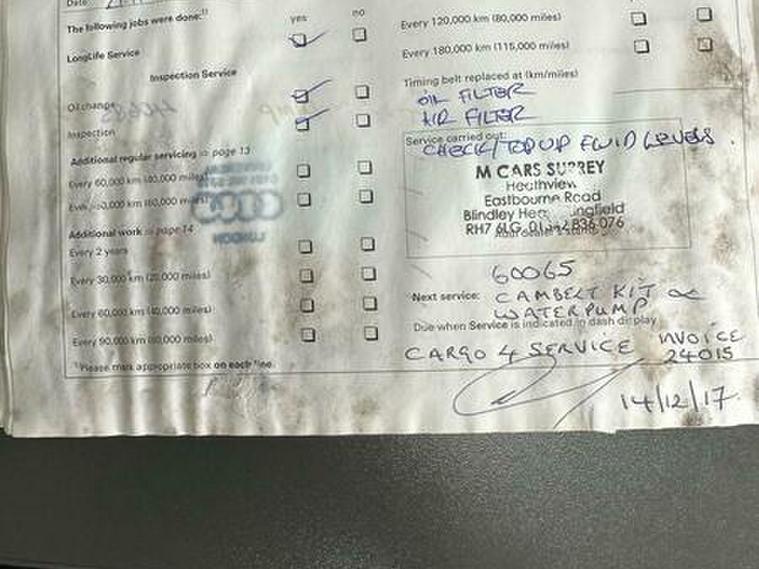 Date
The following jobs were done:¹⁾
yes
no
LongLife Service
Inspection Service
Oil change
Inspection
Additional regular servicing ⇨ page 13
Every 60,000 km (40,000 miles)
Additional work ⇨ page 14
Every 2 years
Every 30,000 km (20,000 miles)
Every 60,000 km (40,000 miles)
Every 90,000 km (60,000 miles)
¹⁾ Please mark appropriate box on each line.
Every 120,000 km (80,000 miles)
Every 180,000 km (115,000 miles)
Timing belt replaced at (km/miles)
OIL FILTER
AIR FILTER
Service carried out:
CHECK/TOP UP FLUID LEVELS.
M CARS SURREY
Heathview
Eastbourne Road
Blindley
RH7 6LG 836 076
60065
Next service:
CAMBELT KIT &
WATERPUMP
Due when Service is indicated in dash display
CARGO 4 SERVICE INVOICE
24015
14/12/17
LONDON